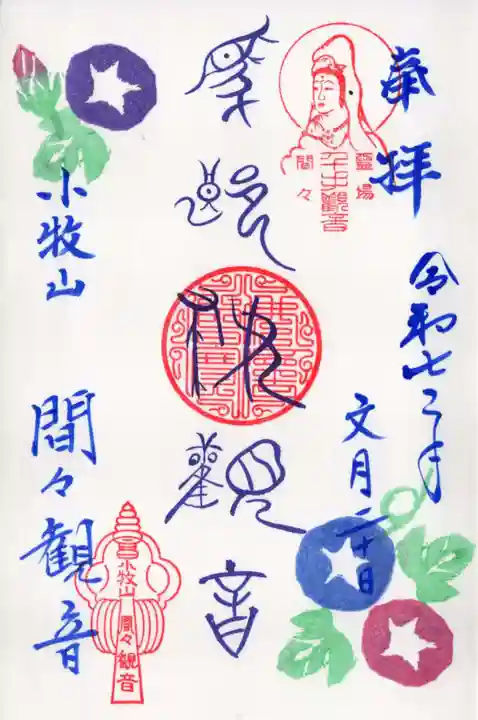 奉拝
令和七年
文月二十日
靈場
千手觀音
間々
觀音
小牧山
間々観音
小牧山
間々觀音